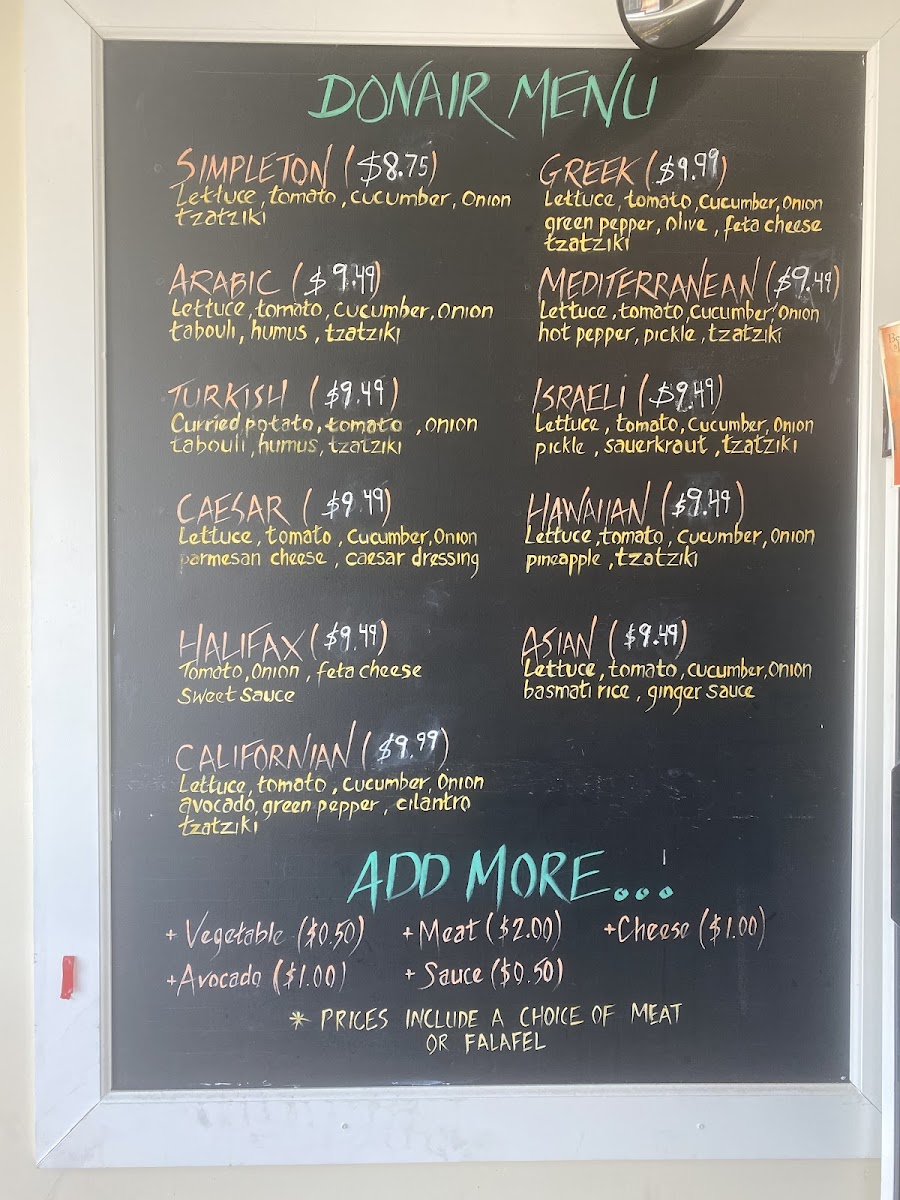 DONAIR MENU
SIMPLETON ($8.75)
Lettuce, tomato, cucumber, onion
tzatziki
GREEK ($9.99)
Lettuce, tomato, cucumber, onion
green pepper, olive, feta cheese
tzatziki
ARABIC ($9.49)
Lettuce, tomato, cucumber, onion
tabouli, humus, tzatziki
MEDITERRANEAN ($9.49)
Lettuce, tomato, cucumber, onion
hot pepper, pickle, tzatziki
TURKISH ($9.49)
Curried potato, tomato, onion
tabouli, humus, tzatziki
ISRAELI ($9.49)
Lettuce, tomato, cucumber, onion
pickle, sauerkraut, tzatziki
CAESAR ($9.49)
Lettuce, tomato, cucumber, onion
parmesan cheese, caesar dressing
HAWAIIAN ($9.49)
Lettuce, tomato, cucumber, onion
pineapple, tzatziki
HALIFAX ($9.49)
Tomato, onion, feta cheese
Sweet sauce
ASIAN ($9.49)
Lettuce, tomato, cucumber, onion
basmati rice, ginger sauce
CALIFORNIAN ($9.99)
Lettuce, tomato, cucumber, onion
avocado, green pepper, cilantro
tzatziki
ADD MORE...!
+ Vegetable ($0.50) + Meat ($2.00) + Cheese ($1.00)
+ Avocado ($1.00) + Sauce ($0.50)
* PRICES INCLUDE A CHOICE OF MEAT
OR FALAFEL